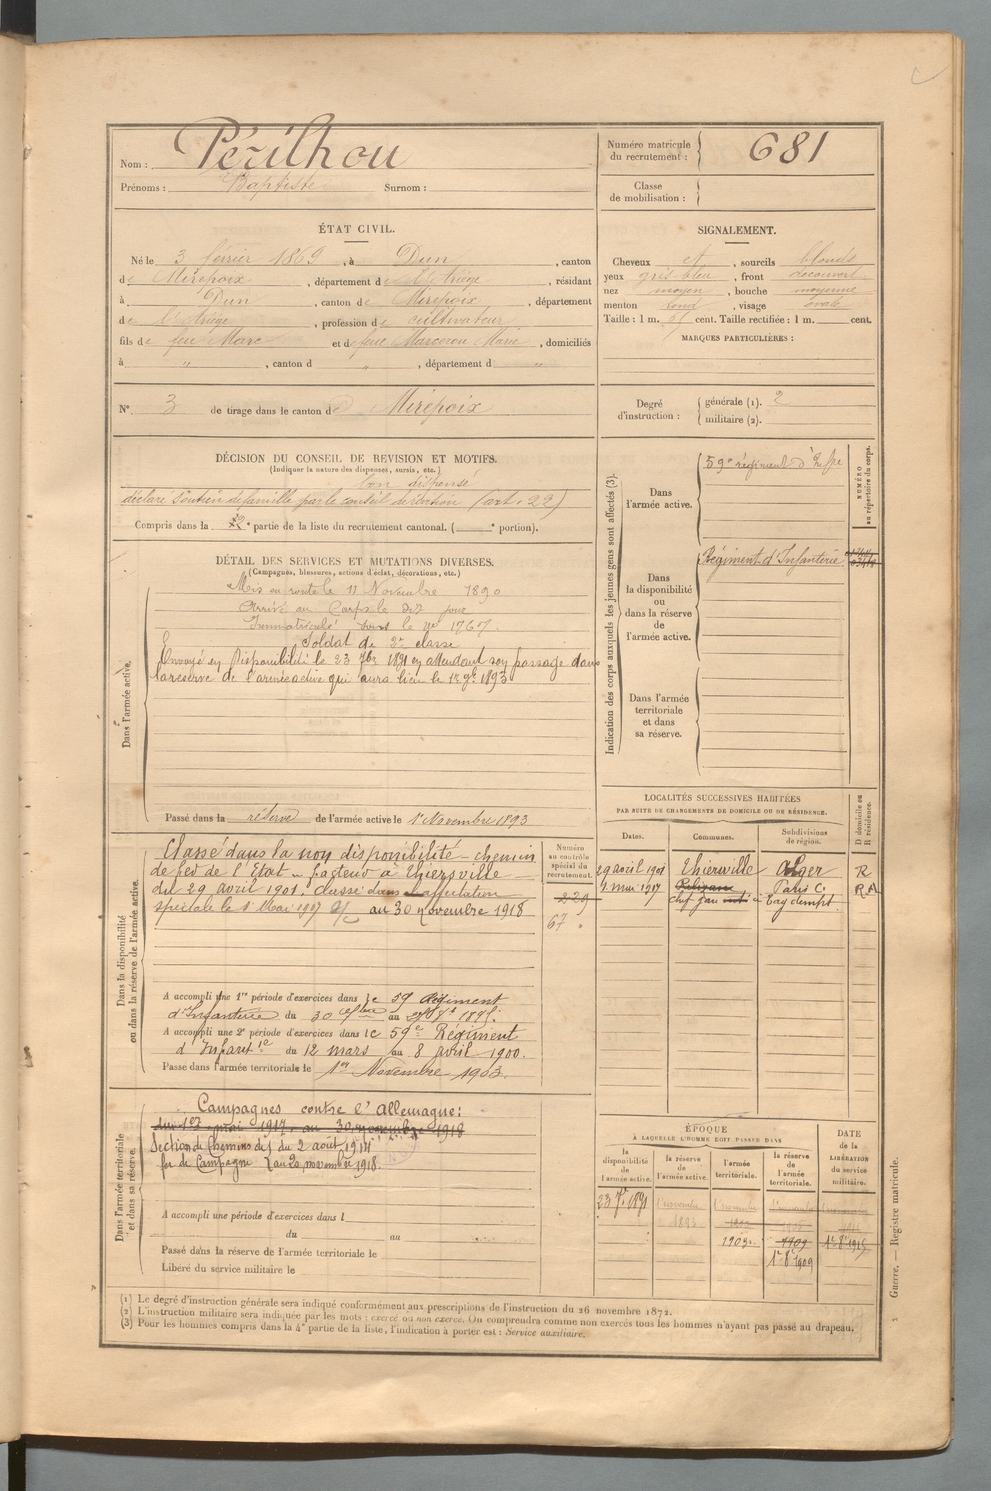 Nom : Périlhou
Prénoms : Baptiste Surnom :
Numéro matricule du recrutement : 681
Classe de mobilisation :
ÉTAT CIVIL.
Né le 3 février 1869, à Dun, canton
de Mirepoix, département de l'Ariège, résidant
à Dun, canton de Mirepoix, département
de l'Ariège, profession de cultivateur
fils de feu Marc et de feue Marceron Marie, domiciliés
à " , canton d " , département d "
SIGNALEMENT.
Cheveux et , sourcils blonds
yeux gris bleu , front découvert
nez moyen , bouche moyenne
menton rond , visage ovale
Taille : 1 m. cent. Taille rectifiée : 1 m. cent.
MARQUES PARTICULIÈRES :
N° 3 de tirage dans le canton de Mirepoix
Degré d'instruction : générale (1). 2
militaire (2).
DÉCISION DU CONSEIL DE REVISION ET MOTIFS.
(Indiquer la nature des dispenses, sursis, etc.)
bon dispensé
déclaré Soutien de famille par le conseil de révision (art. 22)
Compris dans la e partie de la liste du recrutement cantonal. ( e portion).
DÉTAIL DES SERVICES ET MUTATIONS DIVERSES.
(Campagnes, blessures, actions d'éclat, décorations, etc.)
Dans l'armée active.
Mis en route le 11 Novembre 1890
Arrivé au Corps le dit jour
Immatriculé sous le n° 1767.
Soldat de 2e classe
Envoyé en Disponibilité le 23 7bre 1891 en attendant son passage dans
la réserve de l'armée active qui aura lieu le 1er 9bre 1893
Passé dans la réserve de l'armée active le 1er Novembre 1893
Indication des corps auxquels les jeunes gens sont affectés (3).
NUMÉRO au répertoire du corps.
Dans l'armée active.
59e régiment d'Infie
Dans la disponibilité ou dans la réserve de l'armée active.
Régiment d'Infanterie
Dans l'armée territoriale et dans sa réserve.
LOCALITÉS SUCCESSIVES HABITÉES
PAR SUITE DE CHANGEMENTS DE DOMICILE OU DE RÉSIDENCE.
Dates. Communes. Subdivisions de région. D domicile ou R résidence.
29 avril 1901 Thiersville Alger R
1 mai 1917 Relizane Paris C. R A
chef gau à Tagdempt
Dans la disponibilité ou dans la réserve de l'armée active.
Numéro au contrôle spécial du recrutement.
229
67
Classé dans la non disponibilité - chemin
de fer de l'État - facteur à Thiersville -
du 29 avril 1901. Classé dans affectation
spéciale le 1er Mai 1917 au 30 novembre 1918
A accompli une 1re période d'exercices dans le 59 Régiment
d'Infanterie du 30 au
A accompli une 2e période d'exercices dans le 59e Régiment
d'Infantie du 12 mars au 8 avril 1900.
Passé dans l'armée territoriale le 1er Novembre 1903.
Dans l'armée territoriale et dans sa réserve.
Campagnes contre l'Allemagne :
du 1er mai 1917 au 30 novembre 1918
Section de Chemins de fer de Campagne du 2 août 1914
au 20 novembre 1918.
A accompli une période d'exercices dans l
du au
Passé dans la réserve de l'armée territoriale le
Libéré du service militaire le
ÉPOQUE
À LAQUELLE L'HOMME DOIT PASSER DANS
la disponibilité de l'armée active. la réserve de l'armée active. l'armée territoriale. la réserve de l'armée territoriale. DATE de la LIBÉRATION du service militaire.
23 7bre 1891 1 novembre 1893 1903. 1909 1er 8bre 1915
1er 8bre 1909
(1) Le degré d'instruction générale sera indiqué conformément aux prescriptions de l'instruction du 26 novembre 1872.
(2) L'instruction militaire sera indiquée par les mots : exercé ou non exercé. On comprendra comme non exercés tous les hommes n'ayant pas passé au drapeau.
(3) Pour les hommes compris dans la 4e partie de la liste, l'indication à porter est : Service auxiliaire.
Guerre. — Registre matricule.